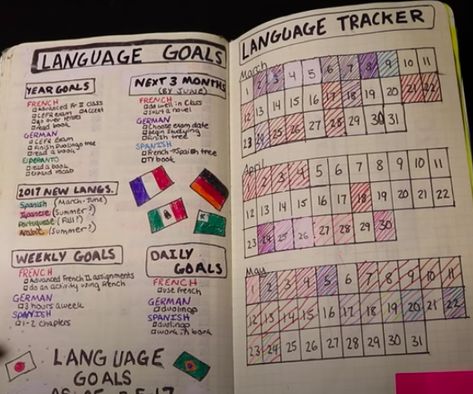 LANGUAGE GOALS
YEAR GOALS
FRENCH
Advanced Fr II class
CEFR exam
go over notes
read book
GERMAN
CEFR exam
finish Duolingo tree
read a book
ESPERANTO
read a book
expand vocab
NEXT 3 MONTHS
(BY JUNE)
FRENCH
do well in class
start a novel
GERMAN
choose exam date
begin studying
finish tree
SPANISH
French → Spanish tree
TY book
2017 NEW LANGS.
Spanish (March-June)
Japanese (Summer?)
Portuguese (Fall?)
Arabic (Summer?)
WEEKLY GOALS
FRENCH
Advanced French II assignments
do an activity using French
GERMAN
3 hours a week
SPANISH
1-2 chapters
DAILY GOALS
FRENCH
use French
GERMAN
duolingo
SPANISH
duolingo
work in book
LANGUAGE
GOALS
LANGUAGE TRACKER
March
1 2 3 4 5 6 7 8 9 10 11
12 13 14 15 16 17 18 19 20 21 22
23 24 25 26 27 28 29 30 31
April
1 2 3 4 5 6 7 8 9 10 11
12 13 14 15 16 17 18 19 20 21 22
23 24 25 26 27 28 29 30
May
1 2 3 4 5 6 7 8 9 10 11
12 13 14 15 16 17 18 19 20 21 22
23 24 25 26 27 28 29 30 31